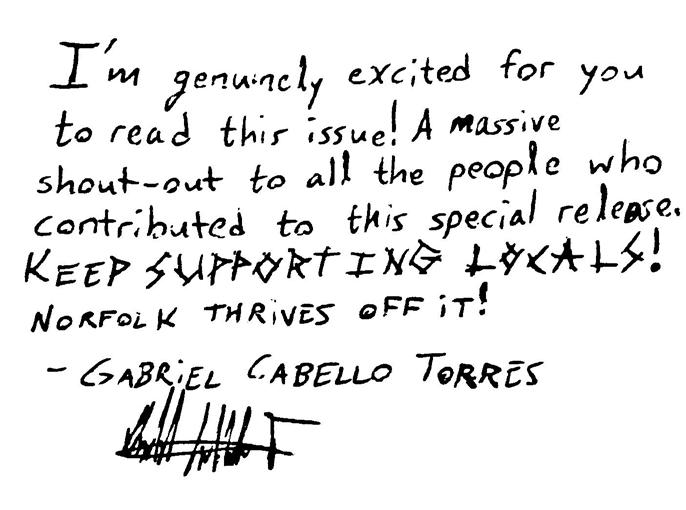 I'm genuinely excited for you
to read this issue! A massive
shout-out to all the people who
contributed to this special release.
KEEP SUPPORTING LOCALS!
NORFOLK THRIVES OFF IT!
- GABRIEL CABELLO TORRES